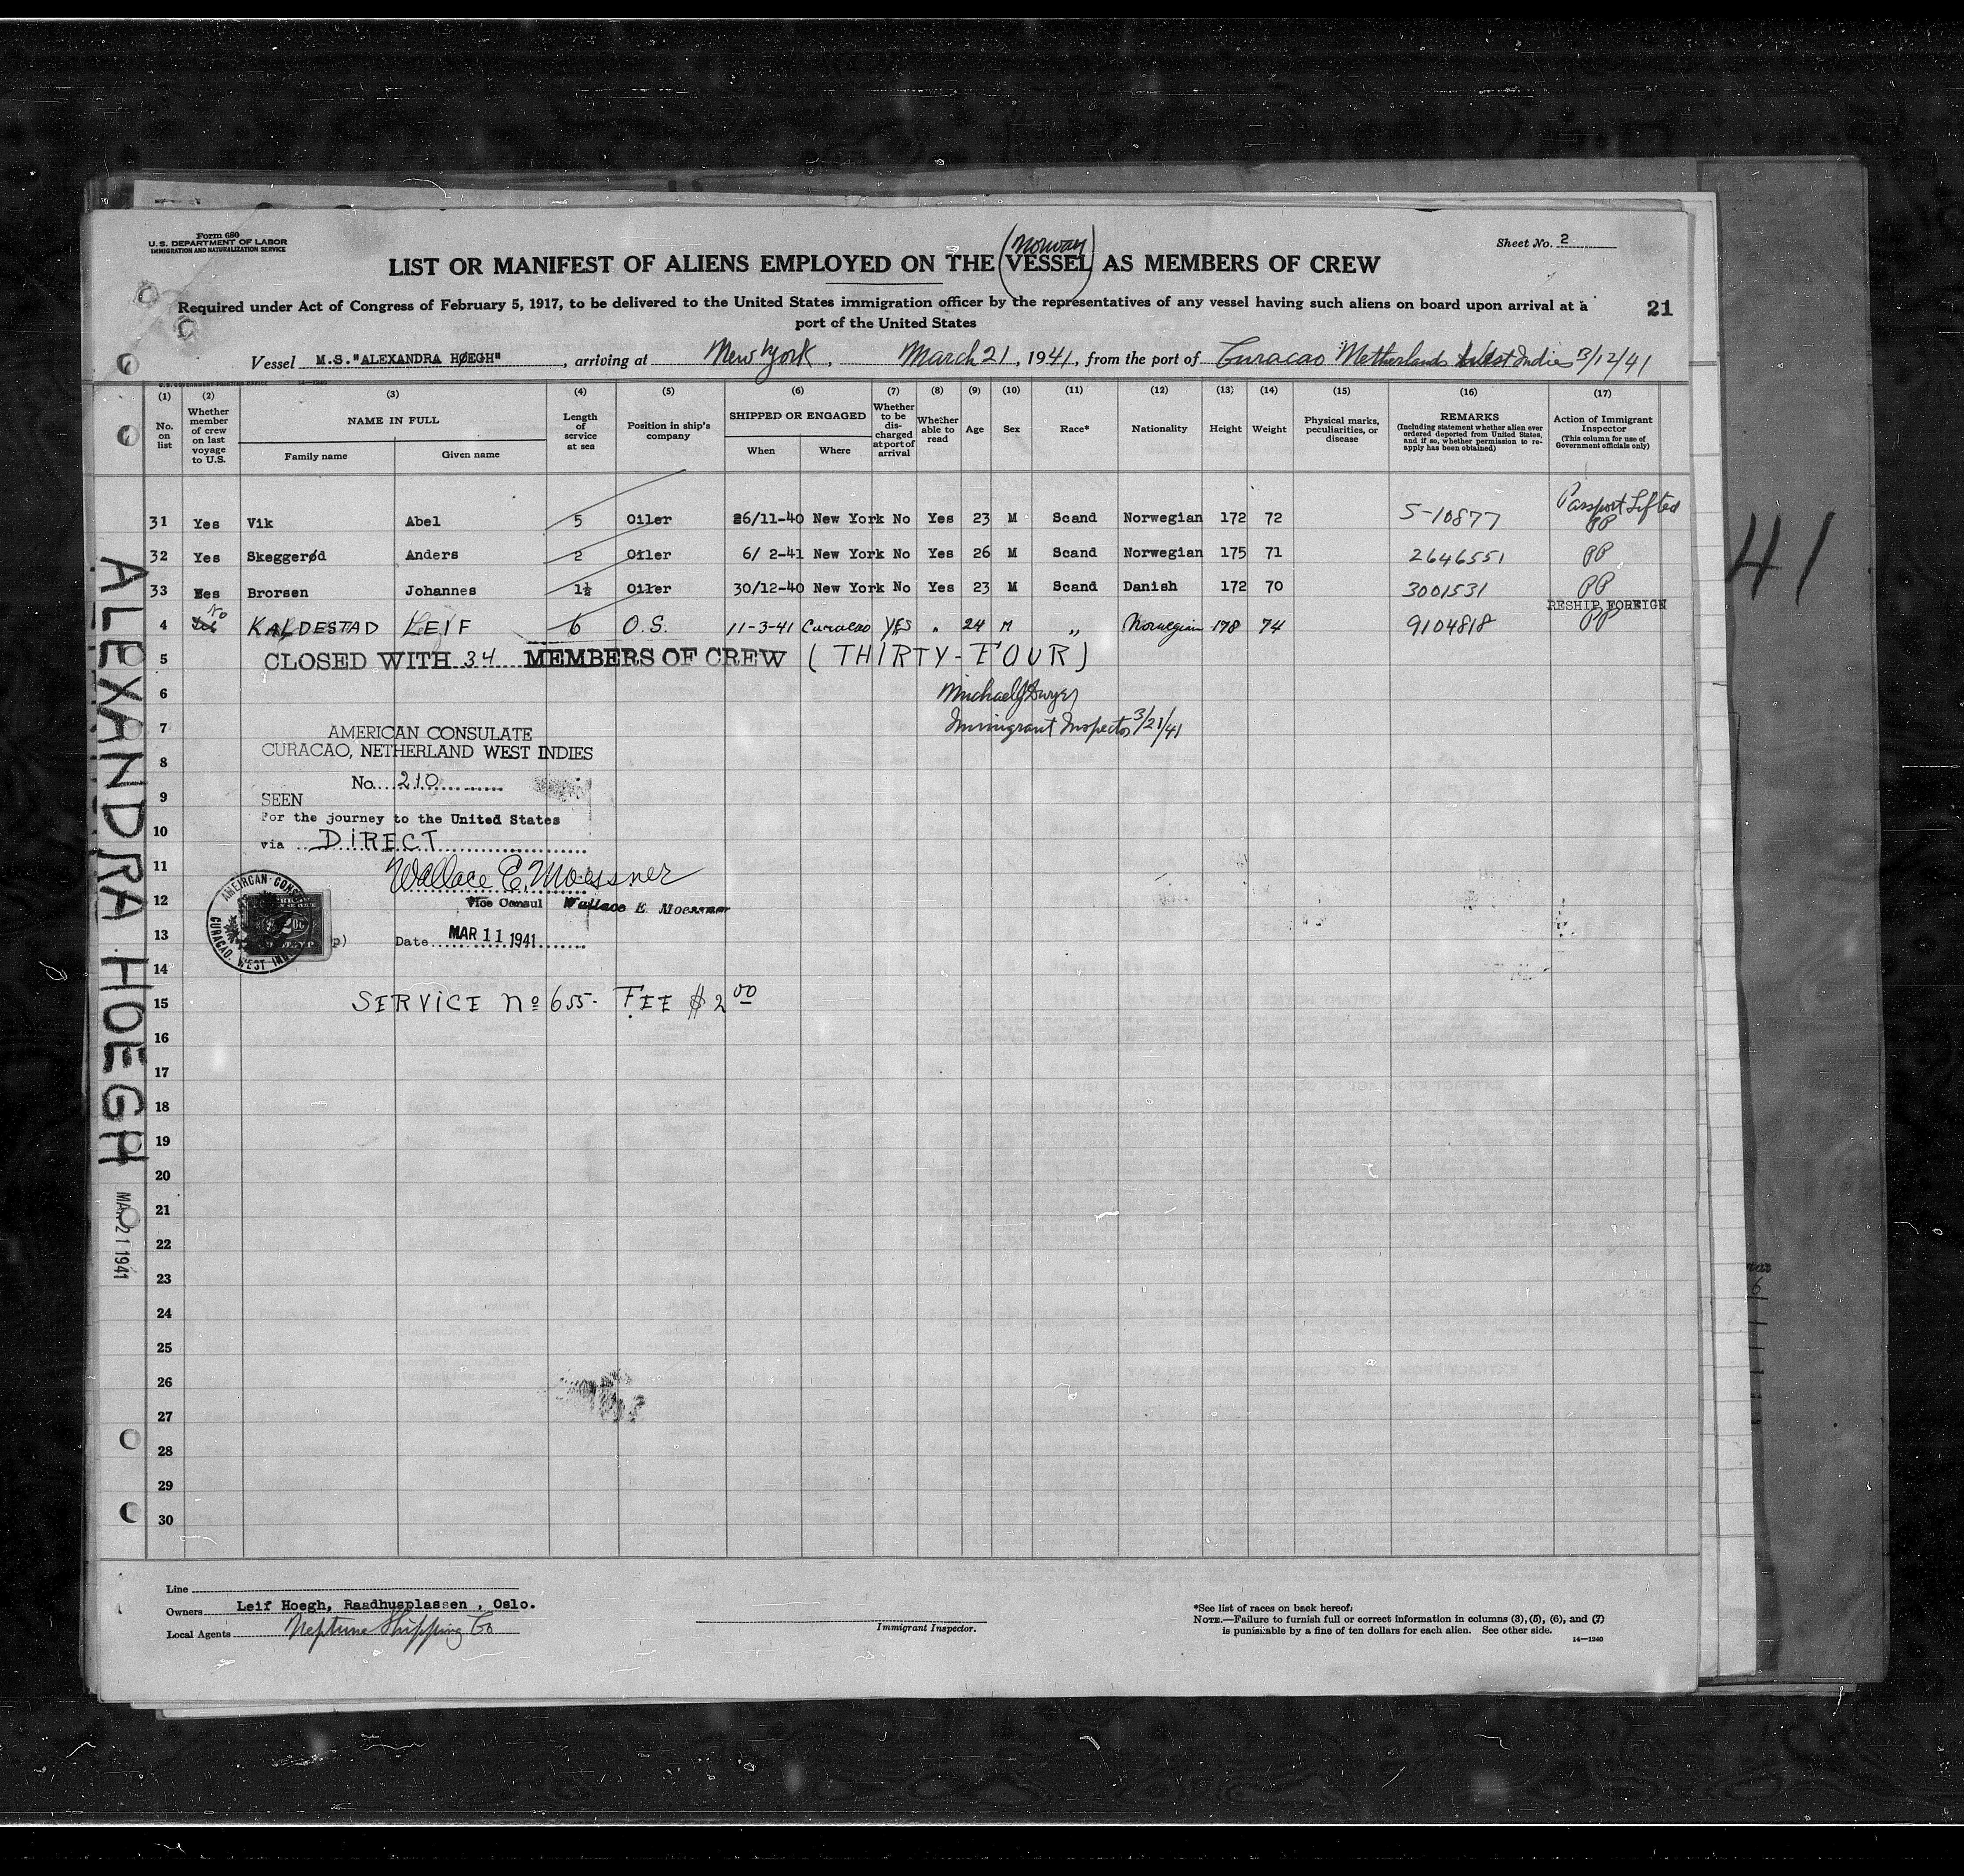 Form 680
U.S. DEPARTMENT OF LABOR
IMMIGRATION AND NATURALIZATION SERVICE
Sheet No. 2
(Norway)
LIST OR MANIFEST OF ALIENS EMPLOYED ON THE VESSEL AS MEMBERS OF CREW
Required under Act of Congress of February 5, 1917, to be delivered to the United States immigration officer by the representatives of any vessel having such aliens on board upon arrival at a
port of the United States
21
Vessel M.S."ALEXANDRA HØEGH", arriving at New York, March 21, 1941, from the port of Curacao Netherlands West Indies 3/12/41
U.S. GOVERNMENT PRINTING OFFICE 14—1240
(1) (2) (3) (4) (5) (6) (7) (8) (9) (10) (11) (12) (13) (14) (15) (16) (17)
No. on list
Whether member of crew on last voyage to U.S.
NAME IN FULL
Family name
Given name
Length of service at sea
Position in ship's company
SHIPPED OR ENGAGED
When
Where
Whether to be discharged at port of arrival
Whether able to read
Age
Sex
Race*
Nationality
Height
Weight
Physical marks, peculiarities, or disease
REMARKS
(Including statement whether alien ever ordered deported from United States, and if so, whether permission to reapply has been obtained)
Action of Immigrant Inspector
(This column for use of Government officials only)
31 Yes Vik Abel 5 Oiler 26/11-40 New York No Yes 23 M Scand Norwegian 172 72 5-10877 Passport Lifted PP
32 Yes Skeggerød Anders 2 Oiler 6/ 2-41 New York No Yes 26 M Scand Norwegian 175 71 2646551 PP
33 Yes Brorsen Johannes 1½ Oiler 30/12-40 New York No Yes 23 M Scand Danish 172 70 3001531 PP
RESHIP FOREIGN
4 No KALDESTAD LEIF 6 O.S. 11-3-41 Curacao YES " 24 M " Norwegian 178 74 9104818 PP
5 CLOSED WITH 34 MEMBERS OF CREW (THIRTY-FOUR)
6 Michael J Dwyer
7 Immigrant Inspector 3/21/41
AMERICAN CONSULATE
CURACAO, NETHERLAND WEST INDIES
8
No. 210
9 SEEN
For the journey to the United States
10
via DIRECT
11 Wallace E. Moessner
12 Vice Consul Wallace E. Moessner
AMERICAN CONS
CURACAO, WEST IND
13 Date MAR 11 1941
14
15 SERVICE No 655. FEE $ 2 00
16
17
18
19
20
21
22
23
24
25
26
27
28
29
30
ALEXANDRA HOEGH
MAR 21 1941
41
Line
Owners Leif Hoegh, Raadhusplassen , Oslo.
Local Agents Neptune Shipping Co
Immigrant Inspector.
*See list of races on back hereof.
NOTE.—Failure to furnish full or correct information in columns (3), (5), (6), and (7)
is punishable by a fine of ten dollars for each alien. See other side.
14—1240